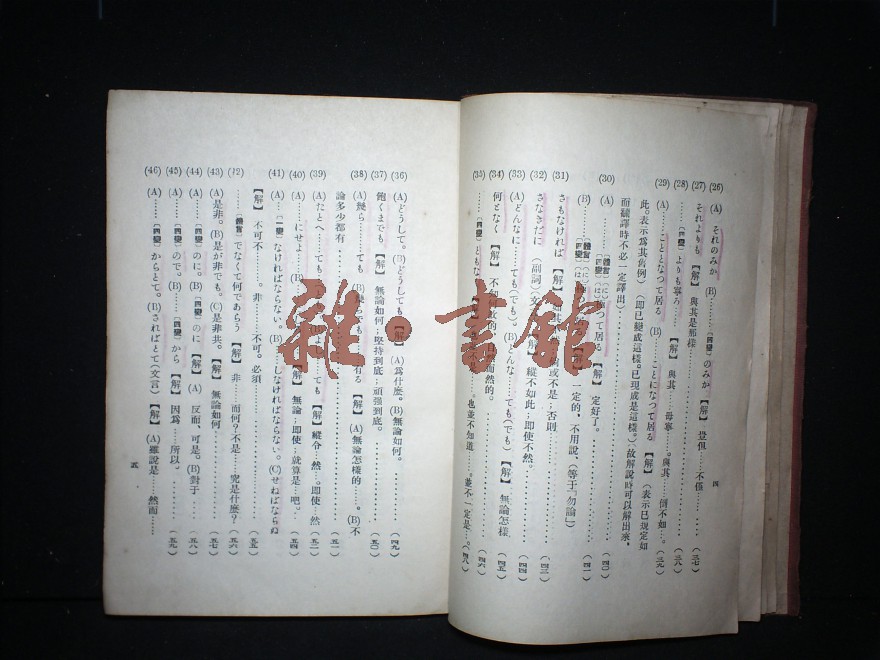 四
(26) (A) それのみか。(B)……〔四變〕のみか【解】豈但……不僅……(三七)
(27) それよりも【解】與其是那樣……(三八)
(28) ……〔四變〕よりも寧ろ……【解】與其……毋寧……與其……倘不如…。(三九)
(29) (A) ……こととなつて居る (B) ……ことになつて居る【解】(表示已規定如
此。表示爲其舊例)(即已變成這樣。已現成是這樣。)故解說時可以解出來,
而翻譯時不必一定譯出)……(四〇)
(30) (A) ……〔體言〕〔四變〕(に)
(B) ……〔體言〕(に)〔四變〕(に)【解】一定的,不用說,(等于「勿論」)(四一)
(31) さもなければ【解】或不是…否則……(四二)
(32) さなきだに(副詞)(文)【解】縱不如此…即使不然。……(四四)
(33) (A)どんなに……ても(でも)。(B)どんな……ても(でも)【解】無論怎樣(四五)
(34) 何となく【解】不知……的。自然而然的。……(四六)
(35) ……〔四變〕ともな……也並不知道……並不一定是…。(四八)
(36) (A)どうして。(B)どうしても【解】(A)爲什麼。(B)無論如何。(四九)
(37) 飽くまでも【解】無論如何…堅持到底…頑强到底。……(五〇)
(38) (A)幾ら……ても (B)幾らでも有る【解】(A)無論怎樣的……。(B)不
論多少都有……(五一)
(39) (A)たとへ……ても……ても【解】縱令…然…。即使…然(五二)
(40) (A)……にせよ (B)……【解】無論…即使…就算是…吧。(五四)
(41) (A)……〔一變〕なければならない。(B)……しなければならない。(C)せねばならぬ
【解】不可不……。非……不可。必須……(五五)
(42) ……〔體言〕でなくて何であらう【解】非……而何?不是……究是什麼?(五六)
(43) (A)是非。(B)是が非でも。(C)是非共。【解】無論如何……(五七)
(44) (A)……〔四變〕のに。(B)……〔四變〕のに【解】(A)反而,可是。(B)對于……(五八)
(45) (A)……〔四變〕ので。(B)……〔四變〕から【解】因爲……所以。……(五九)
(46) (A)……〔四變〕からとて。(B)さればとて(文言)【解】(A)雖說是……然而……
五
雜·書館